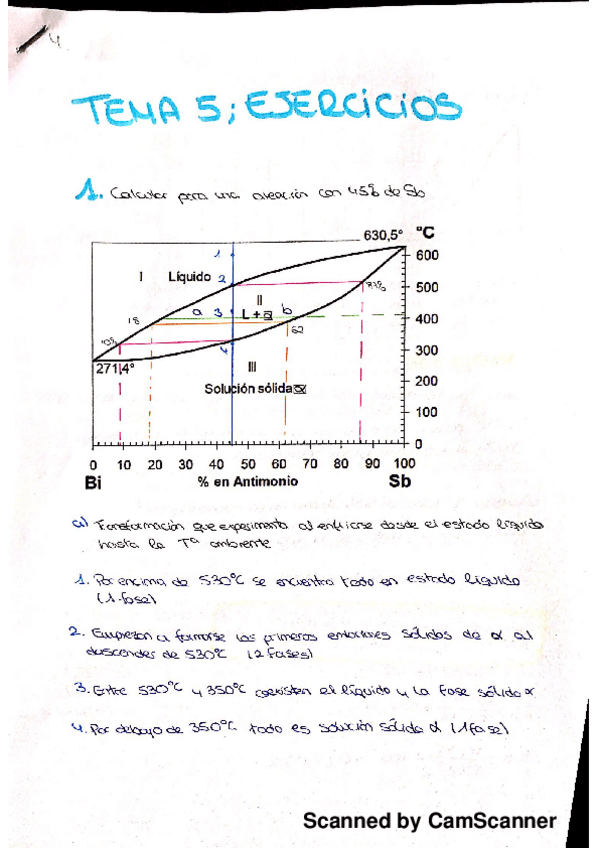 4
TEMA 5; EJERCICIOS
1. Calcular para una aleación con 45% de Sb
630,5° °C
600
500
400
300
200
100
0
I Líquido
1
2
II
a 3 L + α b
18
62
4
271,4°
III
Solución sólida α
0 10 20 30 40 50 60 70 80 90 100
Bi % en Antimonio Sb
a) Transformación que experimenta al enfriarse desde el estado líquido
hasta la Tª ambiente
1. Por encima de 530°C se encuentra todo en estado líquido
(1 fase)
2. Empiezan a formarse los primeros embriones sólidos de α al
descender de 530°C (2 fases)
3. Entre 530°C y 350°C coexisten el líquido y la fase sólida α
4. Por debajo de 350°C todo es solución sólida α (1 fase)
Scanned by CamScanner